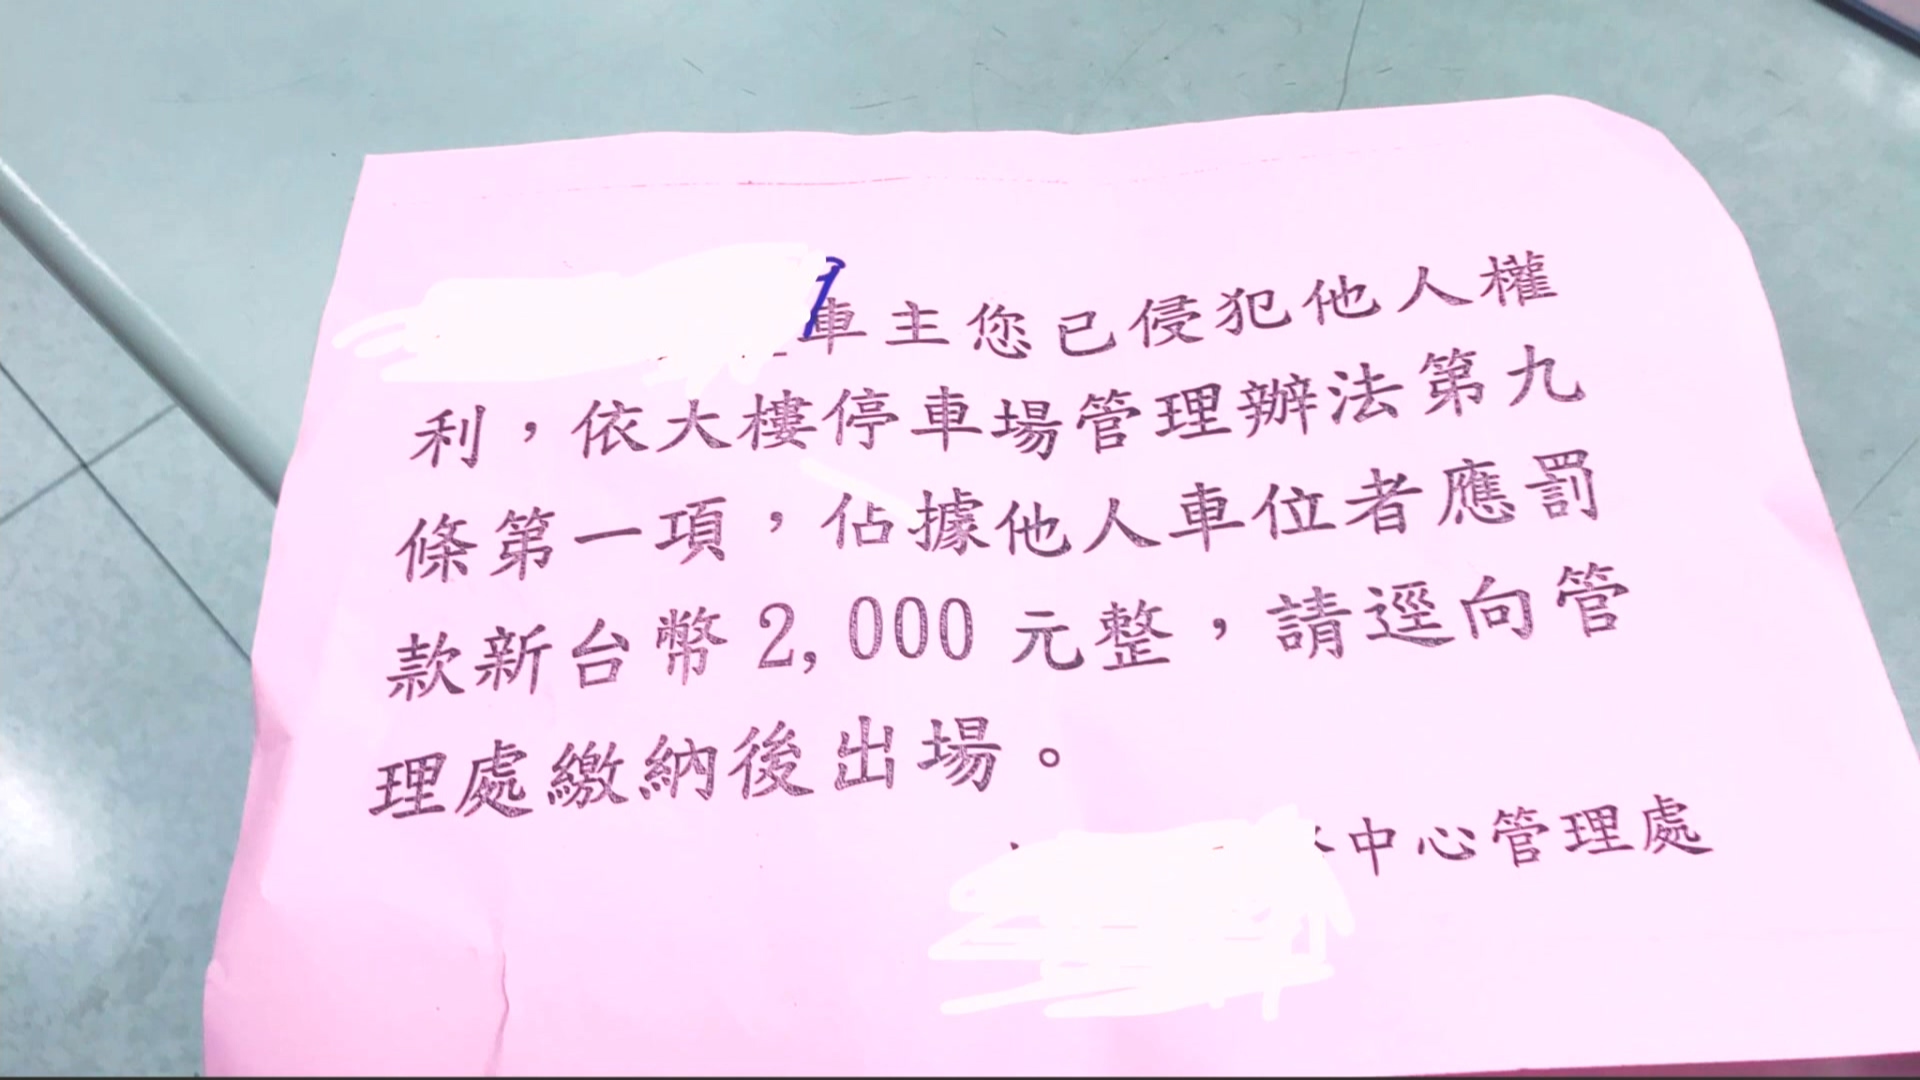 車主您已侵犯他人權
利，依大樓停車場管理辦法第九
條第一項，佔據他人車位者應罰
款新台幣2,000元整，請逕向管
理處繳納後出場。
中心管理處